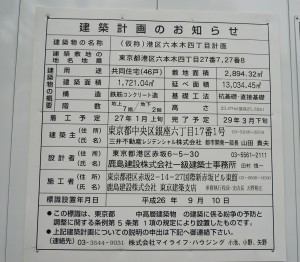 建築計画のお知らせ
建築物の名称 (仮称)港区六本木四丁目計画
建築敷地の地名地番 東京都港区六本木四丁目27番7,27番8
建築物の概要 用途 共同住宅(46戸) 敷地面積 2,894.32㎡
建築面積 1,721.04㎡ 延べ面積 13,034.45㎡
構造 鉄筋コンクリート造 基礎工法 杭基礎・直接基礎
階数 地上 7階 地下 2階 高さ
着工予定 27年1月上旬 完了予定 29年3月下旬
建築主 (住所) 東京都中央区銀座六丁目17番1号
(氏名) 三井不動産レジデンシャル株式会社 都市開発一部長 山田 貴夫
設計者 (住所) 東京都港区赤坂6-5-30 03-5561-2111
(氏名) 鹿島建設株式会社一級建築士事務所
施工者 (住所) 東京都港区赤坂2-14-27国際新赤坂ビル東館
(氏名) 鹿島建設株式会社 東京建築支店
標識設置年月日 平成26年9月10日
●この標識は、東京都 中高層建築物の建築に係る紛争の予防と
調整に関する条例第5条第1項の規定により設置したものです。
●上記建築計画についての説明の申出は下記へご連絡下さい。
(連絡先) 03-3644-9031 株式会社マイライフ・ハウジング 小池、小野、矢野